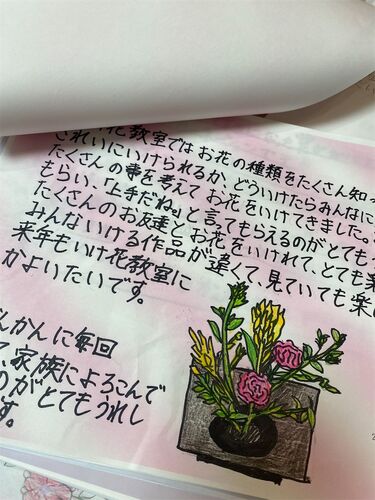 花教室ではお花の種類をたくさん知っ
きれいにいけられるか、どういけたらみんなに
たくさんの事を考えてお花をいけてきました。
もらい、「上手だね。」と言てもらえるのがとても
たくさんのお友達とお花をいけれて、とても楽
みんないける作品が違くて、見ていても楽し
来年もいけ花教室に
かよいたいです。
んかんに毎回
て、家族によろこんで
のがとてもうれし
す。